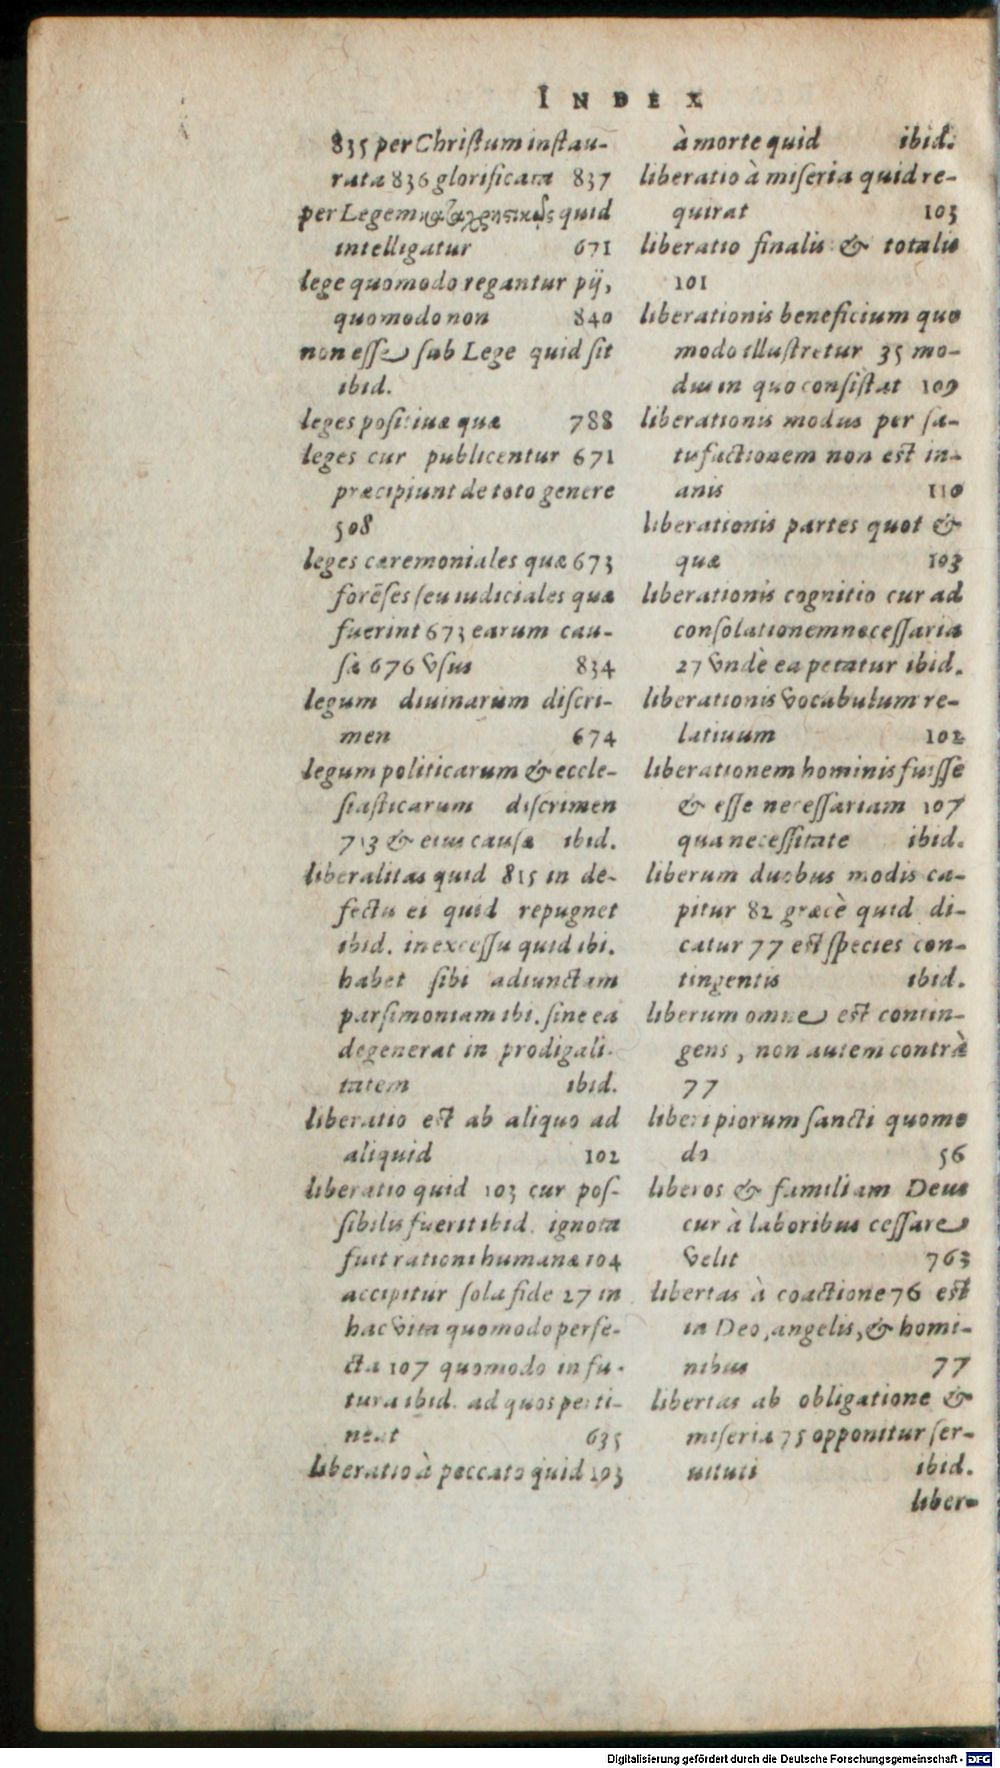 INDEX
835 per Chriſtum inſtau-
rata 836 glorificata 837
per Legem καταχρηστικῶς quid
intelligatur 671
lege quomodo regantur pij,
quomodo non 840
non eſſe ſub Lege quid ſit
ibid.
leges poſitiuæ quæ 788
leges cur publicentur 671
præcipiunt de toto genere
508
leges cæremoniales quæ 673
forēſes ſeu iudiciales quæ
fuerint 673 earum cau-
ſæ 676 vſus 834
legum diuinarum diſcri-
men 674
legum politicarum & eccle-
ſiaſticarum diſcrimen
713 & eius cauſæ ibid.
liberalitas quid 815 in de-
fectu ei quid repugnet
ibid. in exceſſu quid ibi.
habet ſibi adiunctam
parſimoniam ibi. ſine ea
degenerat in prodigali-
tatem ibid.
liberatio est ab aliquo ad
aliquid 102
liberatio quid 103 cur poſ-
ſibilis fuerit ibid. ignota
fuit rationi humanæ 104
accipitur ſola fide 27 in
hac vita quomodo perfe-
cta 107 quomodo in fu-
tura ibid. ad quos perti-
neat 635
liberatio à peccato quid 103
à morte quid ibid.
liberatio à miſeria quid re-
quirat 103
liberatio finalis & totalis
101
liberationis beneficium quo
modo illuſtretur 35 mo-
dus in quo conſiſtat 109
liberationis modus per ſa-
tisfactionem non est in-
anis 110
liberationis partes quot &
quæ 103
liberationis cognitio cur ad
conſolationem neceſſaria
27 vndè ea petatur ibid.
liberationis vocabulum re-
latiuum 102
liberationem hominis fuiſſe
& eſſe neceſſariam 107
qua neceſſitate ibid.
liberum duobus modis ca-
pitur 82 græcè quid di-
catur 77 est ſpecies con-
tingentis ibid.
liberum omne est contin-
gens, non autem contrà
77
liberi piorum ſancti quomo
do 56
liberos & familiam Deus
cur à laboribus ceſſare
velit 763
libertas à coactione 76 est
in Deo, angelis, & homi-
nibus 77
libertas ab obligatione &
miſeria 75 opponitur ſer-
uituti ibid.
liber-
Digitalisierung gefördert durch die Deutsche Forschungsgemeinschaft - DFG